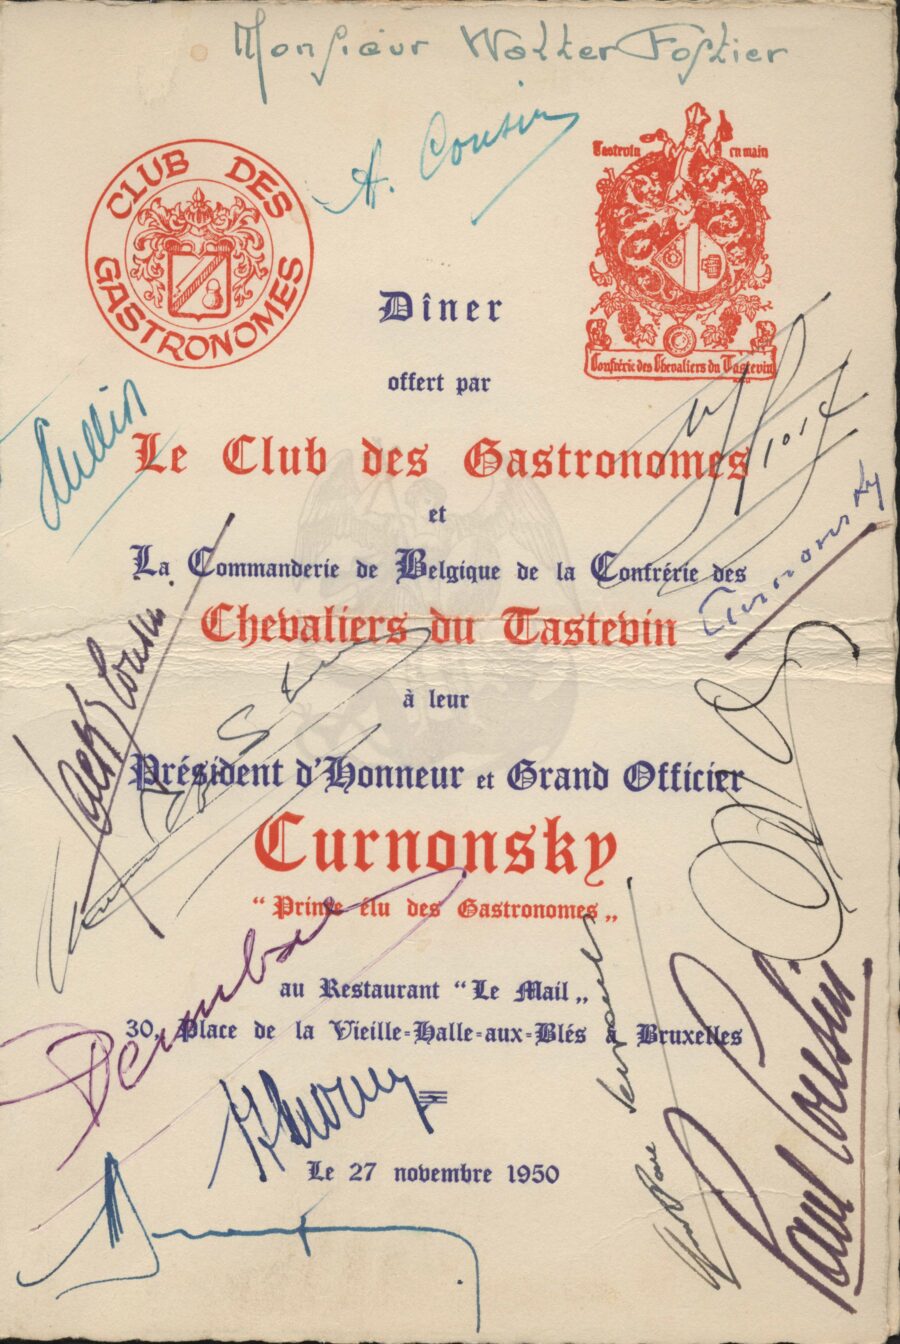 Monsieur Walter Fostier
A. Cousin
CLUB DES
GASTRONOMES
Tastevin en main
Confrérie des Chevaliers du Tastevin
Dîner
offert par
Le Club des Gastronomes
et
La Commanderie de Belgique de la Confrérie des
Chevaliers du Tastevin
Curnonsky
à leur
Jack Cousin
Président d'Honneur et Grand Officier
Curnonsky
“ Prince élu des Gastronomes „
au Restaurant “ Le Mail „
30, Place de la Vieille-Halle-aux-Blés à Bruxelles
Paul Cousin
Le 27 novembre 1950